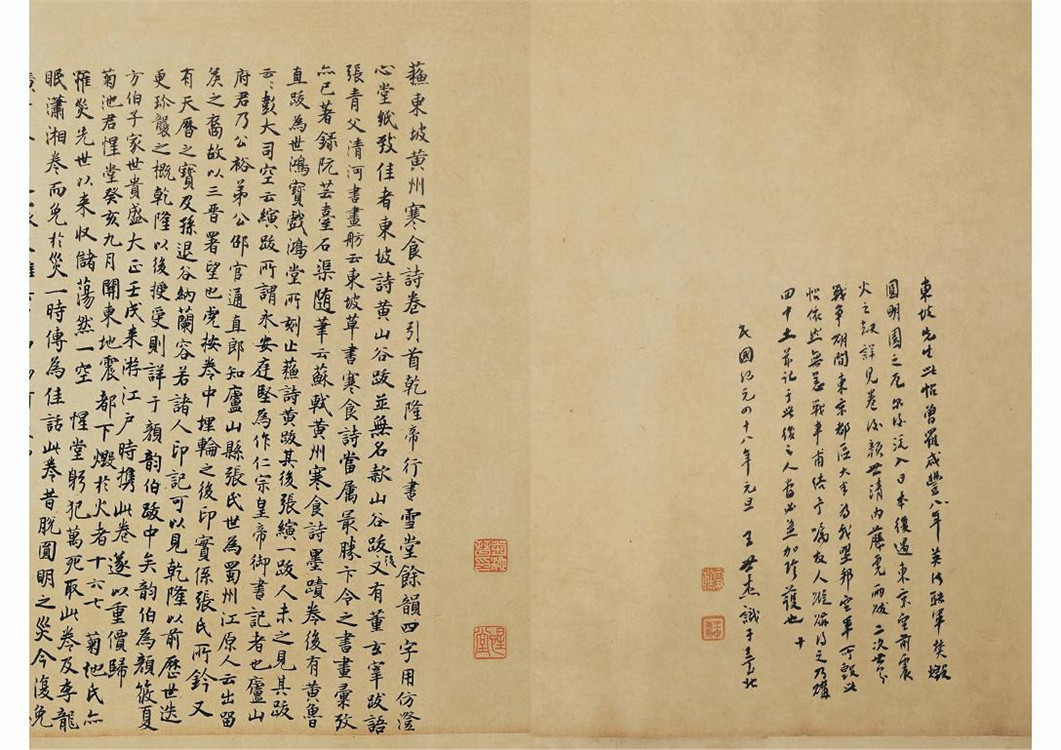 東坡先生此帖曾罹咸豐八年英法聯軍焚燬
圓明園之厄尔後流入日本復遇東京空前震
火之劫詳見卷後顏世清內藤虎兩跋二次世界
戰爭期間東京都區大半為我盟邦空軍所毀此
帖依然無恙戰事甫結予囑友人踪跡得之乃購
回中土並記于此後之人當必益加珍護也
民國紀元四十八年元旦 王世杰識于臺北
蘇東坡黃州寒食詩卷引首乾隆帝行書雪堂餘韻四字用仿澄
心堂紙致佳者東坡詩黃山谷跋並無名款山谷跋後又有董玄宰跋語
張青父清河書畫舫云東坡草書寒食詩當屬最勝卞令之書畫彙攷
亦已著錄阮芸臺石渠隨筆云蘇軾黃州寒食詩墨蹟卷後有黃魯
直跋為世鴻寶戲鴻堂所刻止蘇詩黃跋其後張縯一跋人未之見其跋
云云彭大司空云縯跋所謂永安庭堅為作仁宗皇帝御書記者也廬山
府君乃公裕弟公邵官通直郎知廬山縣張氏世為蜀州江原人云出留
侯之裔故以三晉署望也虎按卷中埋輪之後印實係張氏所鈐又
有天曆之寶及孫退谷納蘭容若諸人印記可以見乾隆以前歷世迭
更珍襲之概乾隆以後授受則詳于顏韻伯跋中矣韻伯為顏筱夏
方伯子家世貴盛大正壬戌来游江戶時攜此卷遂以重價歸
菊池君惺堂癸亥九月關東地震都下燬於火者十六七菊池氏亦
罹災先世以来収儲蕩然一空惺堂躬犯萬死取此卷及李龍
眠瀟湘卷而免於災一時傳為佳話此卷昔脫圓明之災今復免